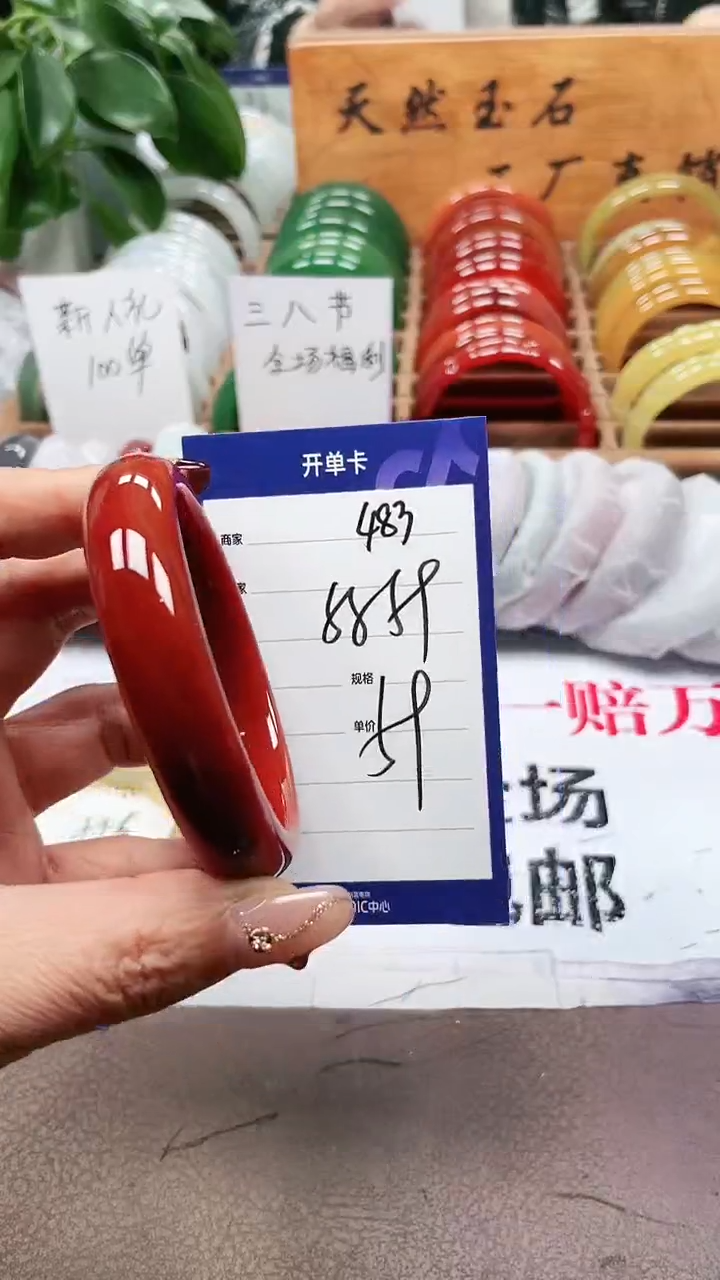 天然玉石
工厂直销
新人礼
100单
三八节
全场福利
开单卡
商家 483
家
规格
单价
IC中心
一赔万
场
邮